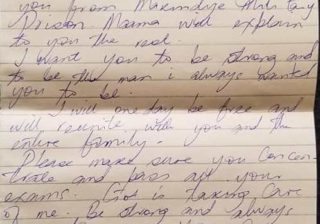 you from Makindye Military
Prison Maama will explain
to you the rest.
I want you to be strong and
to be the man i always wanted
you to be.
I will one day be free and
will reunite with you and the
entire family.
Please make sure you Concen-
trate and pass all your
exams. God is taking Care
of me. Be strong and always